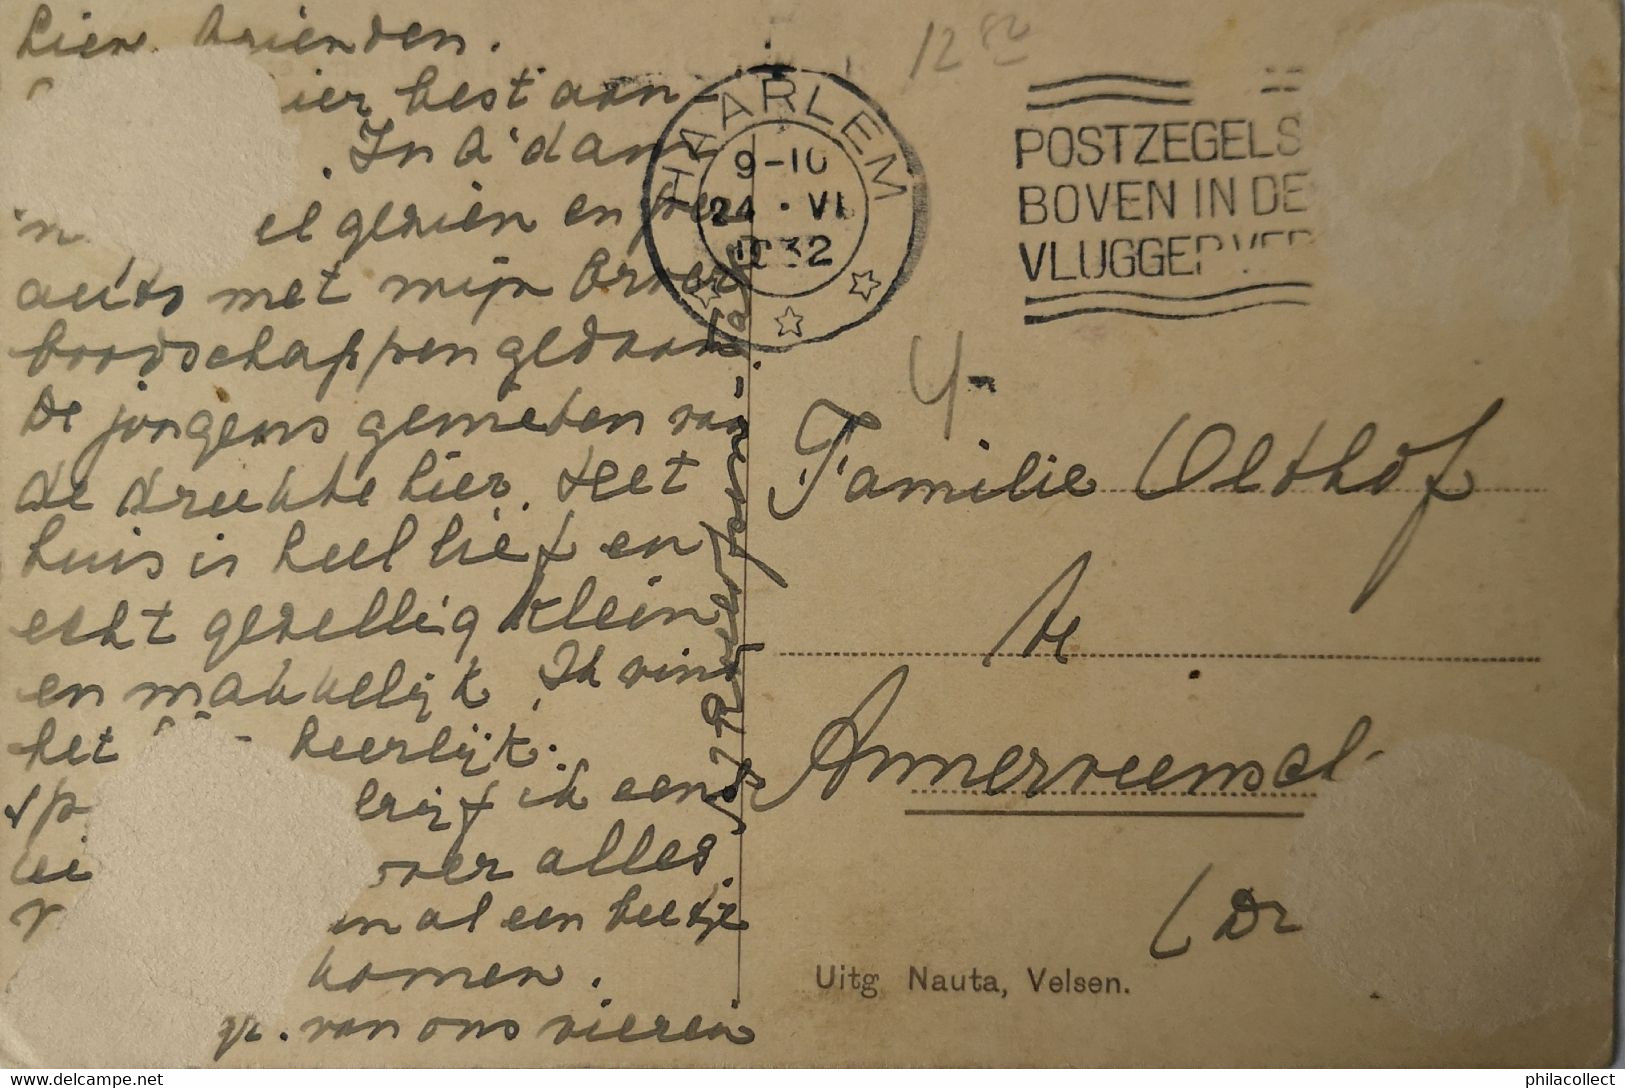 Lieve vrienden.
hier best aan-
. In A'dam
el gezien en per
auto met mijn broer
boodschappen gedaan
De jongens genieten van
de drukte hier. Het
huis is heel lief en
echt gezellig klein
en makkelijk. Ik vind
het heerlijk.
schrijf ik eens
over alles
al een beetje
komen.
gr. van ons vieren
HAARLEM
9-10
24 · VI
1932
POSTZEGELS
BOVEN IN DE
VLUGGER VER
12 82
4-
Familie Olthof
te
Annerveensch
(Dr
Uitg Nauta, Velsen.
philacollect